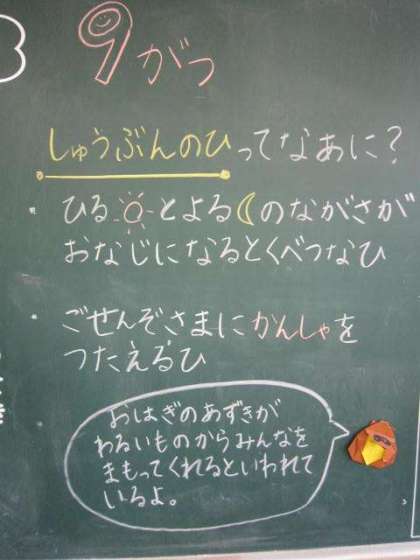 9がつ
しゅうぶんのひってなあに?
・ひるとよるのながさが
おなじになるとくべつなひ
・ごせんぞさまにかんしゃを
つたえるひ
おはぎのあずきが
わるいものからみんなを
まもってくれるといわれて
いるよ。